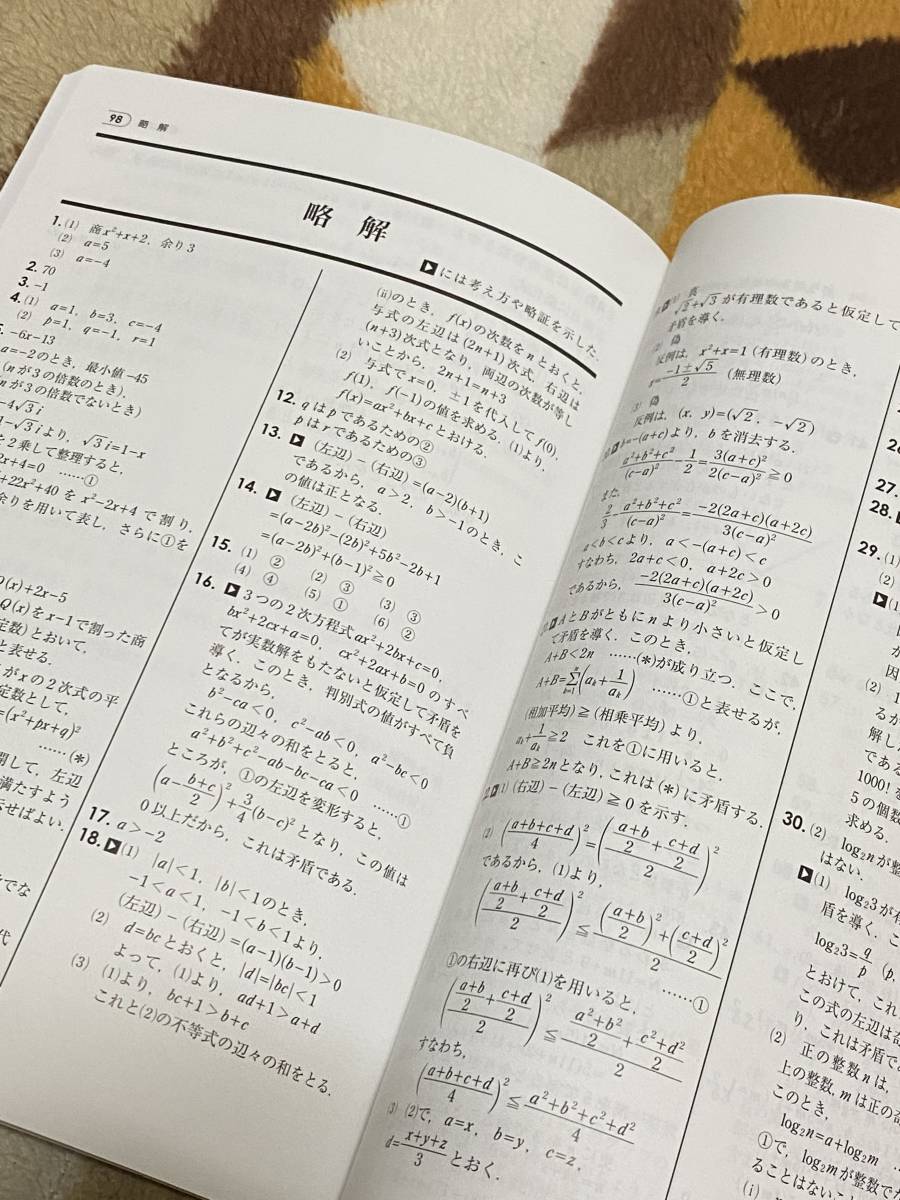 98 略 解
略 解
▶には考え方や略証を示した.
1. (1) 商 x²+x+2, 余り 3
(2) a=5
(3) a=-4
2. 70
3. -1
4. (1) a=1, b=3, c=-4
(2) p=1, q=-1, r=1
-6x-13
a=-2のとき, 最小値-45
(nが3の倍数のとき),
nが3の倍数でないとき)
-4√3 i
√3 i=1-x
を2乗して整理すると,
2x+4=0 ……①
+22x²+40 を x²-2x+4 で割り,
余りを用いて表し, さらに①を
Q(x)+2x-5
Q(x)をx-1で割った商
定数)とおいて,
と表せる.
がxの2次式の平
定数として,
=(x²+px+q)²
……(*)
開して, 左辺
満たすよう
せばよい.
(ii)のとき, f(x)の次数をnとおくと,
与式の左辺は(2n+1)次式, 右辺は
(n+3)次式となり, 両辺の次数が等し
いことから, 2n+1=n+3
(2) 与式でx=0, ±1を代入してf(0),
f(1), f(-1)の値を求める. (1)より,
f(x)=ax²+bx+cとおける.
12. qはpであるための②
pはrであるための③
13. ▶ (左辺)-(右辺)=(a-2)(b+1)
であるから, a>2, b>-1のとき, こ
の値は正となる.
14. ▶ (左辺)-(右辺)
=(a-2b)²-(2b)²+5b²-2b+1
=(a-2b)²+(b-1)²≧0
15. (1) ② (2) ③ (3) ③
(4) ④ (5) ① (6) ②
16. ▶ 3つの2次方程式ax²+2bx+c=0,
bx²+2cx+a=0, cx²+2ax+b=0のすべ
てが実数解をもたないと仮定して矛盾を
導く. このとき, 判別式の値がすべて負
となるから,
b²-ca<0, c²-ab<0, a²-bc<0
これらの辺々の和をとると,
a²+b²+c²-ab-bc-ca<0 ……①
ところが, ①の左辺を変形すると,
(a-(b+c)/2)²+3/4(b-c)²となり, この値は
0以上だから, これは矛盾である.
17. a>-2
18. ▶(1) |a|<1, |b|<1のとき,
-1<a<1, -1<b<1より,
(左辺)-(右辺)=(a-1)(b-1)>0
(2) d=bcとおくと, |d|=|bc|<1
よって, (1)より, ad+1>a+d
(3) (1)より, bc+1>b+c
これと(2)の不等式の辺々の和をとる.
真
√2+√3が有理数であると仮定して
矛盾を導く.
偽
反例は, x²+x=1 (有理数)のとき,
x=(-1±√5)/2 (無理数)
(3) 偽
反例は, (x, y)=(√2, -√2)
b=-(a+c)より, bを消去する.
(a²+b²+c²)/(c-a)²-1/2=3(a+c)²/2(c-a)²≧0
また,
2/3-(a²+b²+c²)/(c-a)²=-2(2a+c)(a+2c)/3(c-a)²
a<b<cより, a<-(a+c)<c
すなわち, 2a+c<0, a+2c>0
であるから, -2(2a+c)(a+2c)/3(c-a)²>0
▶AとBがともにnより小さいと仮定し
て矛盾を導く. このとき,
A+B<2n ……(*)が成り立つ. ここで,
A+B=Σ(k=1→n)(aₖ+1/aₖ) ……①と表せるが,
(相加平均)≧(相乗平均)より,
aₖ+1/aₖ≧2 これを①に用いると,
A+B≧2nとなり, これは(*)に矛盾する.
▶(1) (右辺)-(左辺)≧0を示す.
(2) ((a+b+c+d)/4)²=(((a+b)/2+(c+d)/2)/2)²
であるから, (1)より,
(((a+b)/2+(c+d)/2)/2)²≦(((a+b)/2)²+((c+d)/2)²)/2 ……①
①の右辺に再び(1)を用いると,
(((a+b)/2+(c+d)/2)/2)²≦((a²+b²)/2+(c²+d²)/2)/2
すなわち,
((a+b+c+d)/4)²≦(a²+b²+c²+d²)/4
(3) (2)で, a=x, b=y, c=z,
d=(x+y+z)/3とおく.
27.
28. ▶
29. (1)
(2)
▶(1)
因
(2) 1
るが
解し
であ
1000!を
5の個数
求める.
30. (2) log₂nが整
はない.
▶(1) log₂3が有
盾を導く.
log₂3=q/p (p,
とおけて, これ
この式の左辺は奇
り, これは矛盾であ
(2) 正の整数nは,
上の整数, mは正の奇
このとき,
log₂n=a+log₂m
①で, log₂mが整数で
ることはない
(i)